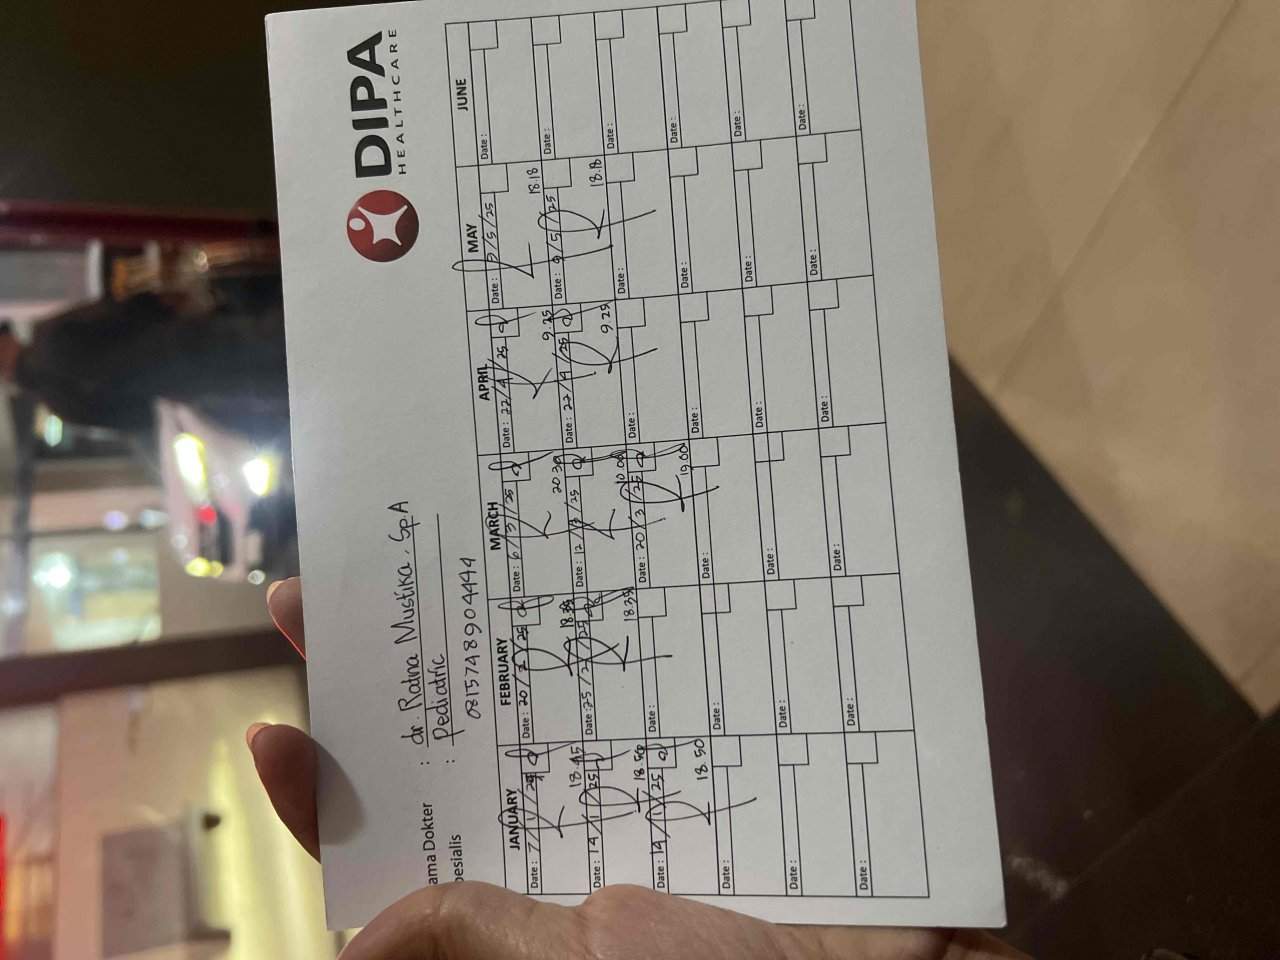 DIPA
HEALTHCARE
ama Dokter : dr. Ratna Mustika, Sp.A
pesialis : Pediatric
081574890 4444
JANUARY FEBRUARY MARCH APRIL MAY JUNE
Date: 7/1/25 Date: 20/2/25 Date: 6/3/25 Date: 22/4/25 Date: /5/25 Date:
18.45 18.39 20.30 9.25 18.18
Date: 14/1/25 Date: 25/2/25 Date: 12/3/25 Date: 22/4/25 Date: 9/5/25 Date:
18.50 18.39 10.00 9.25 18.18
Date: 14/1/25 Date: Date: 20/3/25 Date: Date: Date:
18.50 19.00
Date: Date: Date: Date: Date: Date:
Date: Date: Date: Date: Date: Date:
Date: Date: Date: Date: Date: Date: